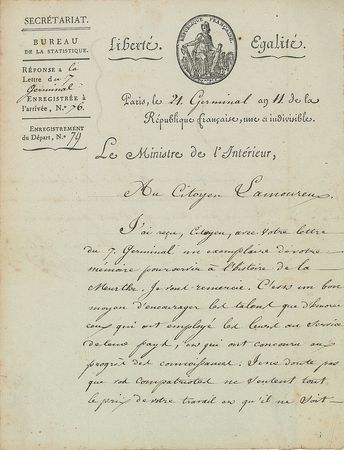 SECRÉTARIAT.
BUREAU
DE LA STATISTIQUE.
RÉPONSE à la
Lettre du 7
Germinal
ENREGISTRÉE à
l'arrivée, N.º 76.
ENREGISTREMENT
du Départ, N.º 79
Liberté.
RÉPUBLIQUE FRANÇAISE
Egalité.
Paris, le 21. Germinal an 11 de la
République française, une et indivisible.
Le Ministre de l'Intérieur,
Au Citoyen Lamoureux
J'ai reçu, Citoyen, avec votre lettre
du 7. Germinal un exemplaire de votre
mémoire pour servir à l'histoire de la
Meurthe. Je vous remercie. C'est un bon
moyen d'encourager les talens que d'honorer
ceux qui ont employé les leurs au service
de leurs pays, ou qui ont concouru au
progrès des connoissances. Je ne doute pas
que vos compatriotes ne sentent tout
le prix de votre travail et qu'il ne soit